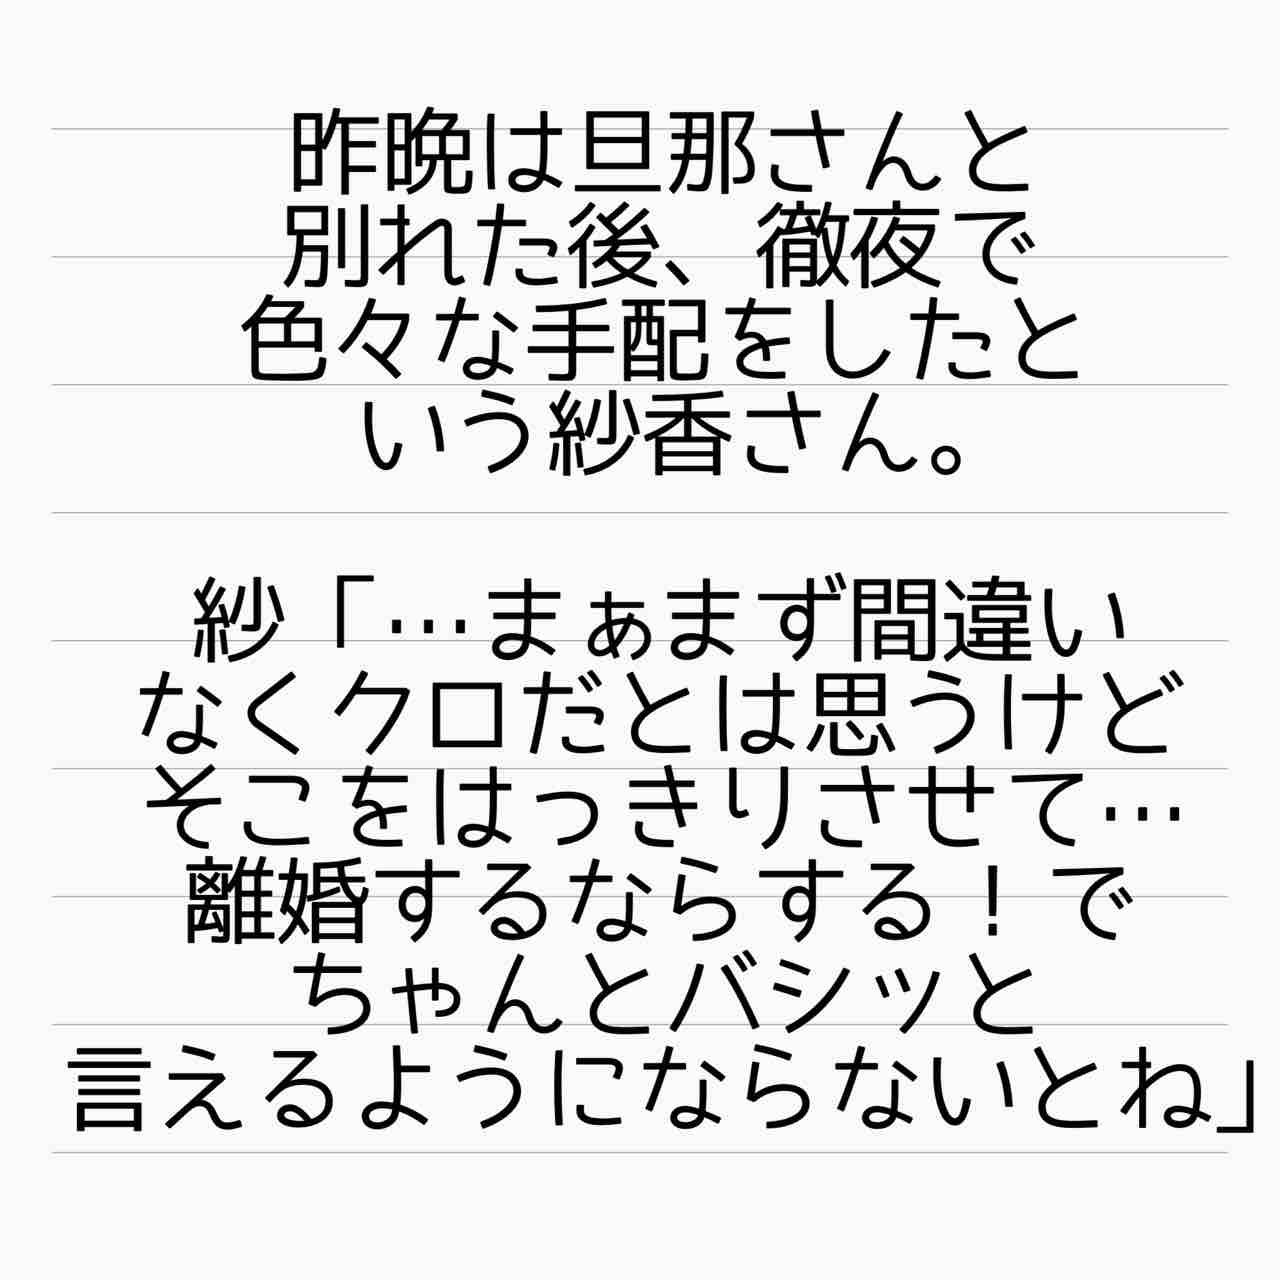 昨晩は旦那さんと
別れた後、徹夜で
色々な手配をしたと
いう紗香さん。
紗「…まぁまず間違い
なくクロだとは思うけど
そこをはっきりさせて…
離婚するならする！で
ちゃんとバシッと
言えるようにならないとね」